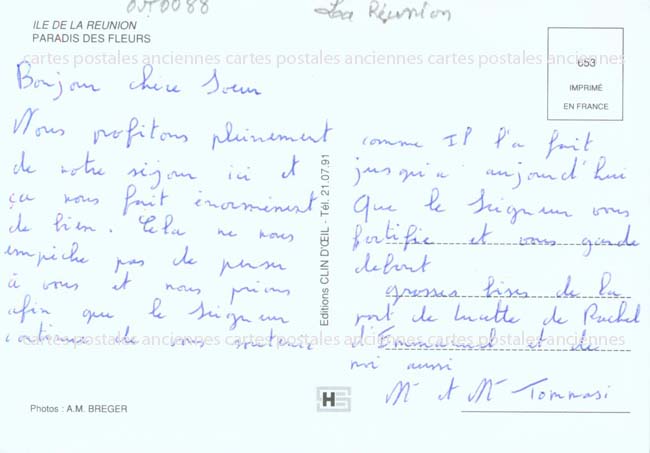 OJ0088
La Réunion
ILE DE LA REUNION
PARADIS DES FLEURS
cartes postales anciennes cartes postales anciennes cartes postales anciennes
Bonjour chère Soeur
Nous profitons pleinement
de notre séjour ici et
ça nous fait énormément
de bien. Cela ne nous
empêche pas de penser
à vous et nous prions
afin que le Seigneur
continue de vous soutenir
653
IMPRIMÉ
EN FRANCE
comme Il l'a fait
jusqu'à aujourd'hui
Que le Seigneur vous
fortifie et vous garde
debout
grosses bises de la
part de Lucette de Rachel
d'Emmanuel et de
moi aussi
Mr et Me Tommasi
cartes postales anciennes cartes postales anciennes cartes postales anciennes
Editions CLIN D'ŒIL - Tél. 21.07.91
HS
Photos : A.M. BREGER